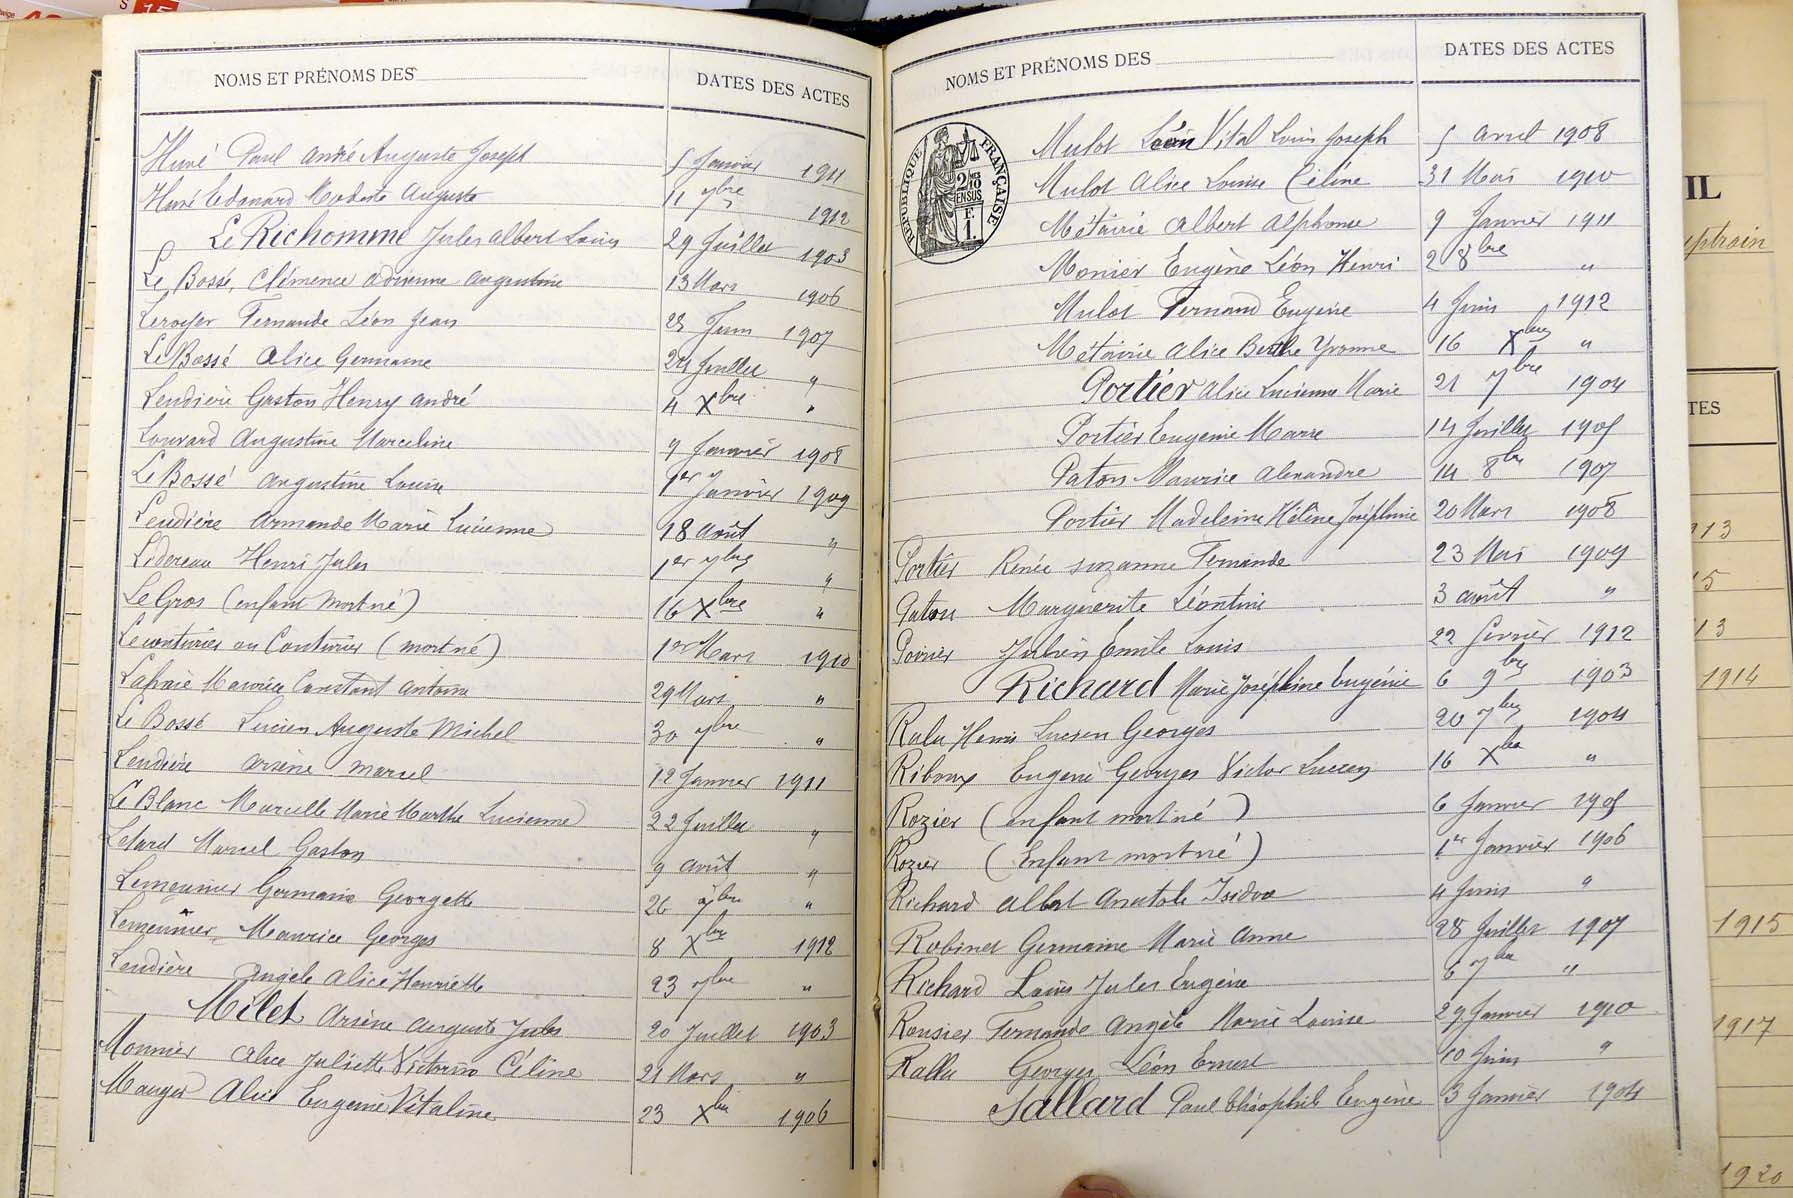 NOMS ET PRÉNOMS DES DATES DES ACTES
Huvé Paul André Auguste Joseph 5 Janvier 1911
Huvé Edouard Modeste Auguste 11 7bre 1912
Le Richomme Jules Albert Louis 29 Juillet 1903
Le Bossé, Clémence Adrienne Augustine 13 Mars 1906
Leroyer Fernande Léon Jean 23 Juin 1907
Le Bossé Alice Germaine 24 Juillet "
Lendière Gaston Henry André 4 Xbre "
Louvard Augustine Marceline 9 Janvier 1908
Le Bossé Augustine Louise 1er Janvier 1909
Lendière Armande Marie Lucienne 18 Août "
Lidereau Henri Jules 1er 7bre "
Le Gros (enfant mort né) 16 Xbre "
Lecouturier ou Couturier (mort né) 1er Mars 1910
Maurice Constant Antoine 29 Mars "
Le Bossé Lucien Auguste Michel 30 7bre "
Lendière Arsène Marcel 12 Janvier 1911
Le Blanc Marcelle Marie Marthe Lucienne 22 Juillet "
Letard Marcel Gaston 9 Août "
Lemeunier Germaine Georgette 26 7bre "
Lemeunier, Maurice Georges 8 Xbre 1912
Lendière Angèle Alice Henriette 23 7bre "
Milet Arsène Auguste Jules 20 Juillet 1903
Monnier Alice Juliette Victorine Céline 21 Mars "
Mauger Alice Eugenie Vitaline 23 Xbre 1906
NOMS ET PRÉNOMS DES DATES DES ACTES
RÉPUBLIQUE FRANÇAISE
2/10 MES
EN SUS
F.
1.
Mulot Léon Vital Louis Joseph 5 Avril 1908
Mulot Alice Louise Céline 31 Mai 1910
Métairie Albert Alphonse 9 Janvier 1911
Monier Eugène Léon Henri 2 8bre "
Mulot Fernand Eugène 4 Juin 1912
Métairie Alice Berthe Yvonne 16 Xbre "
Portier Alice Lucienne Marie 21 7bre 1904
Portier Eugenie Marie 14 Juillet 1905
Paton Maurice Alexandre 14 8bre 1907
Portier Madeleine Hélène Joséphine 20 Mars 1908
Portier Renée Suzanne Fernande 23 Mai 1909
Paton Marguerite Léontine 3 août "
Poirier Julien Emile Louis 22 février 1912
Richard Marie Joséphine Eugénie 6 9bre 1903
Ralu Henri Lucien Georges 20 7bre 1904
Riboux Eugène Georges Victor Lucien 16 Xbre "
Rozier (enfant mort né) 6 Janvier 1905
Rozier (Enfant mort né) 1er Janvier 1906
Richard Albert Anatole Isidore 4 Juin "
Robinet Germaine Marie Anne 28 Juillet 1907
Richard Louis Jules Eugène 6 7bre "
Rousier Fernande Angèle Marie Louise 29 Janvier 1910
Rallu Georges Léon Ernest 10 Juin "
Sallard Paul Théophile Eugène 3 Janvier 1904
IL
TES
1914
1915
1917
1920